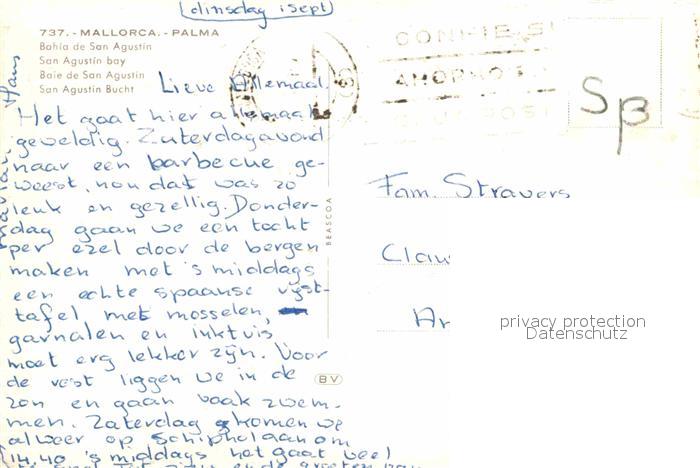 (dinsdag 1 sept)
737.-MALLORCA.-PALMA
Bahía de San Agustín
San Agustín bay
Baie de San Agustin
San Agustin Bucht
Lieve Allemaal,
Het gaat hier allemaal
geweldig. Zaterdagavond
naar een barbecue ge-
weest, nou dat was zo
leuk en gezellig. Donder-
dag gaan we een tocht
per ezel door de bergen
maken met 's middags
een echte spaanse rijst-
tafel, met mosselen,
garnalen en inktvis
moet erg lekker zijn. Voor
de rest liggen we in de
zon en gaan vaak zwem-
men. Zaterdag komen we
alweer op Schiphol aan om
14.40 's middags het gaat veel
Hans
BEASCOA
BV
Sp
Fam. Stravers
Clau
Ar
privacy protection
Datenschutz